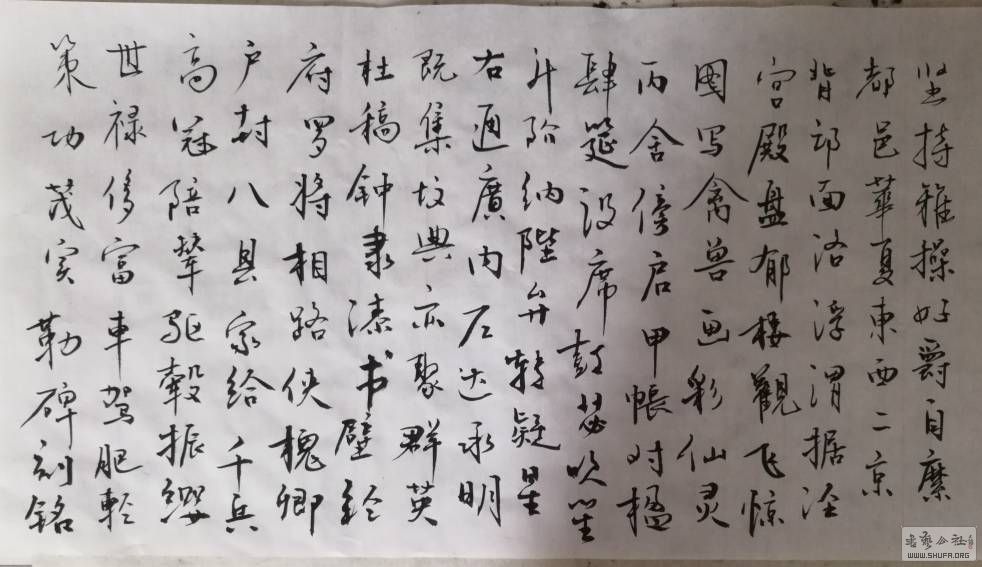 坚持雅操好爵自縻
都邑華夏東西二京
背邙面洛浮渭据泾
宫殿盘郁楼觀飞惊
图写禽兽画彩仙灵
丙舍傍启甲帳对楹
肆筵设席鼓瑟吹笙
升阶纳陛弁转疑星
右通廣内左达承明
既集坟典亦聚群英
杜稿钟隶漆书壁经
府罗将相路侠槐卿
户封八县家给千兵
高冠陪辇驱毂振缨
世禄侈富車驾肥轻
策功茂实勒碑刻铭
WWW.SHUFR.ORG